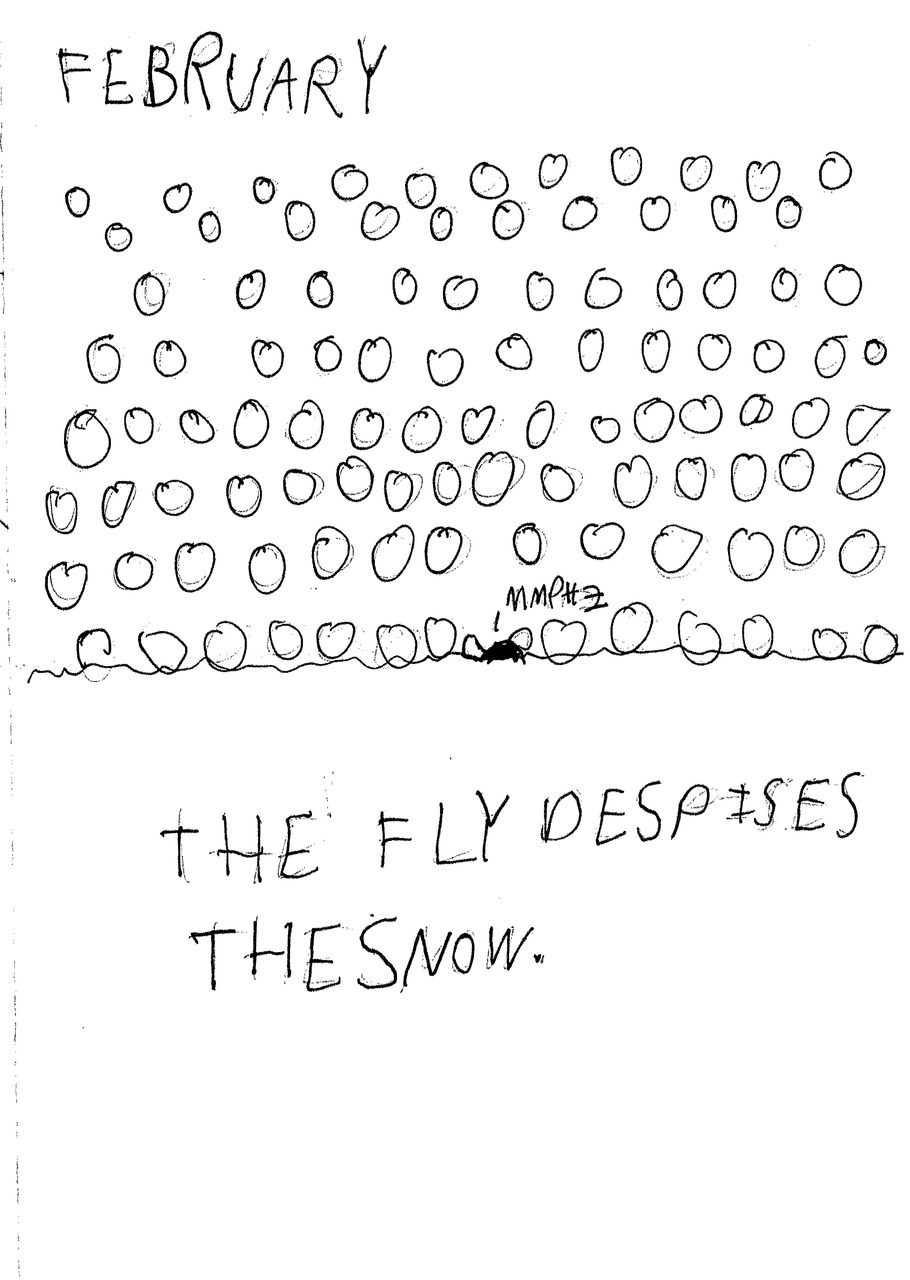 FEBRUARY
MMPHZ
THE FLY DESPISES
THE SNOW.